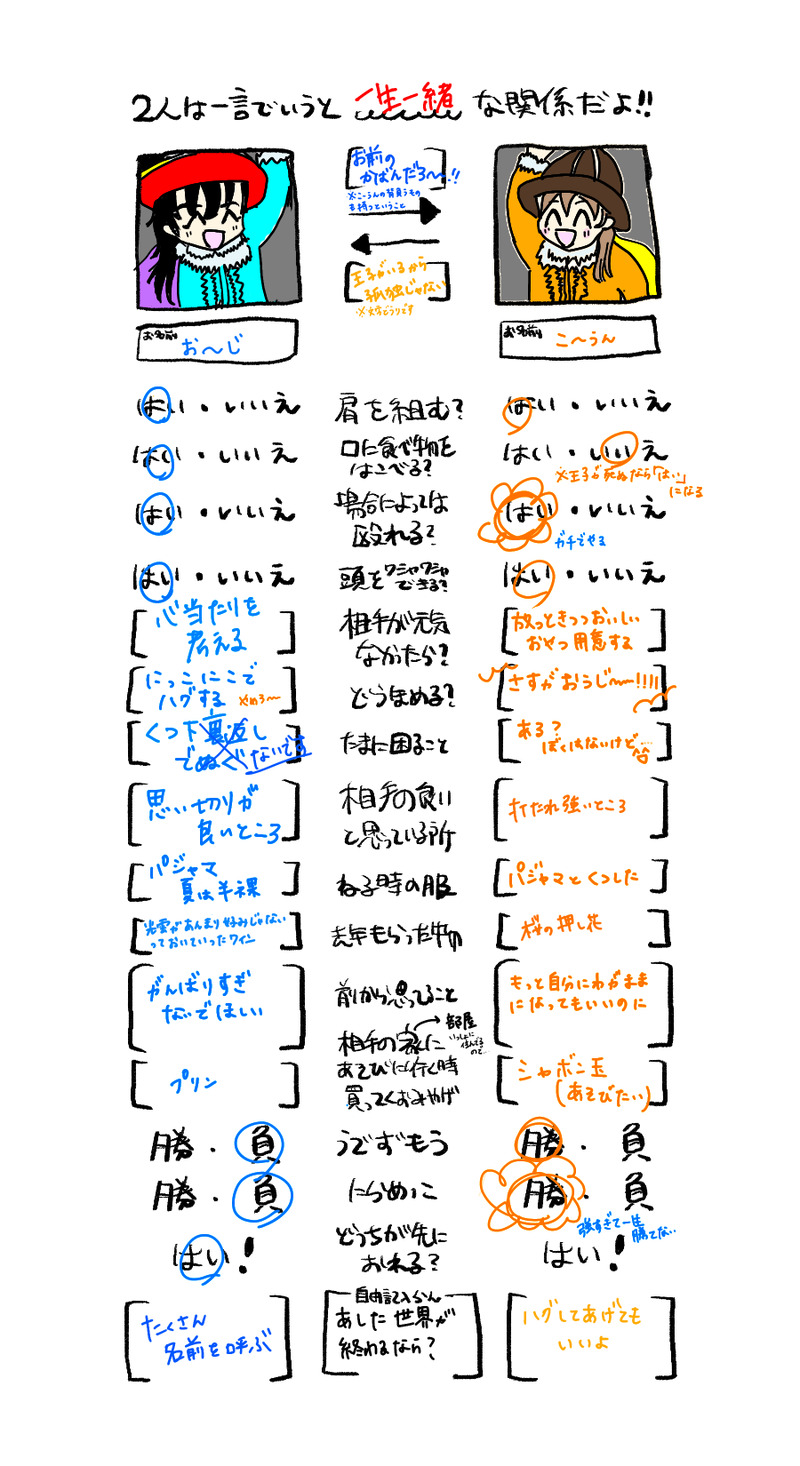 2人は一言でいうと 一生一緒 な関係だよ!!
お前の
かばんだろ〜〜!!
※こ〜うんの背負うもの
を持つということ
王子がいるから
孤独じゃない
※文字どうりです
お名前 お〜じ
お名前 こ〜うん
はい・いいえ 肩を組む? はい・いいえ
はい・いいえ 口に食べ物を はい・いいえ
はこべる?
※王子が死ぬなら「はい」
になる
はい・いいえ 場合によっては はい・いいえ
殴れる?
ガチでやる
はい・いいえ 頭をワシャワシャ はい・いいえ
できる?
心当たりを 相手が元気 放っときつつおいしい
考える なかったら? おやつ用意する
にっこにこで どうほめる? さすがおうじ〜〜!!!!
ハグする やめろ〜
くつ下裏返し たまに困ること ある?
でぬぐ ないです ぼくはないけど…
思い切りが 相手の良い 打たれ強いところ
良いところ と思っている所
パジャマ ねる時の服 パジャマとくつした
夏は半裸
光雲があんまり好みじゃない 去年もらった物 桜の押し花
っておいていったワイン
がんばりすぎ 前から思ってること もっと自分にわがまま
ないでほしい になってもいいのに
相手の家に 部屋
いっしょに
住んでる
ので
プリン あそびに行く時 シャボン玉
買ってくおみやげ (あそびたい)
勝・負 うでずもう 勝・負
勝・負 にらめっこ 勝・負
強すぎて一生
勝てな..
はい! どっちが先に はい!
おれる?
自由記入らん
たくさん あした世界が ハグしてあげても
名前を呼ぶ 終わるなら? いいよ